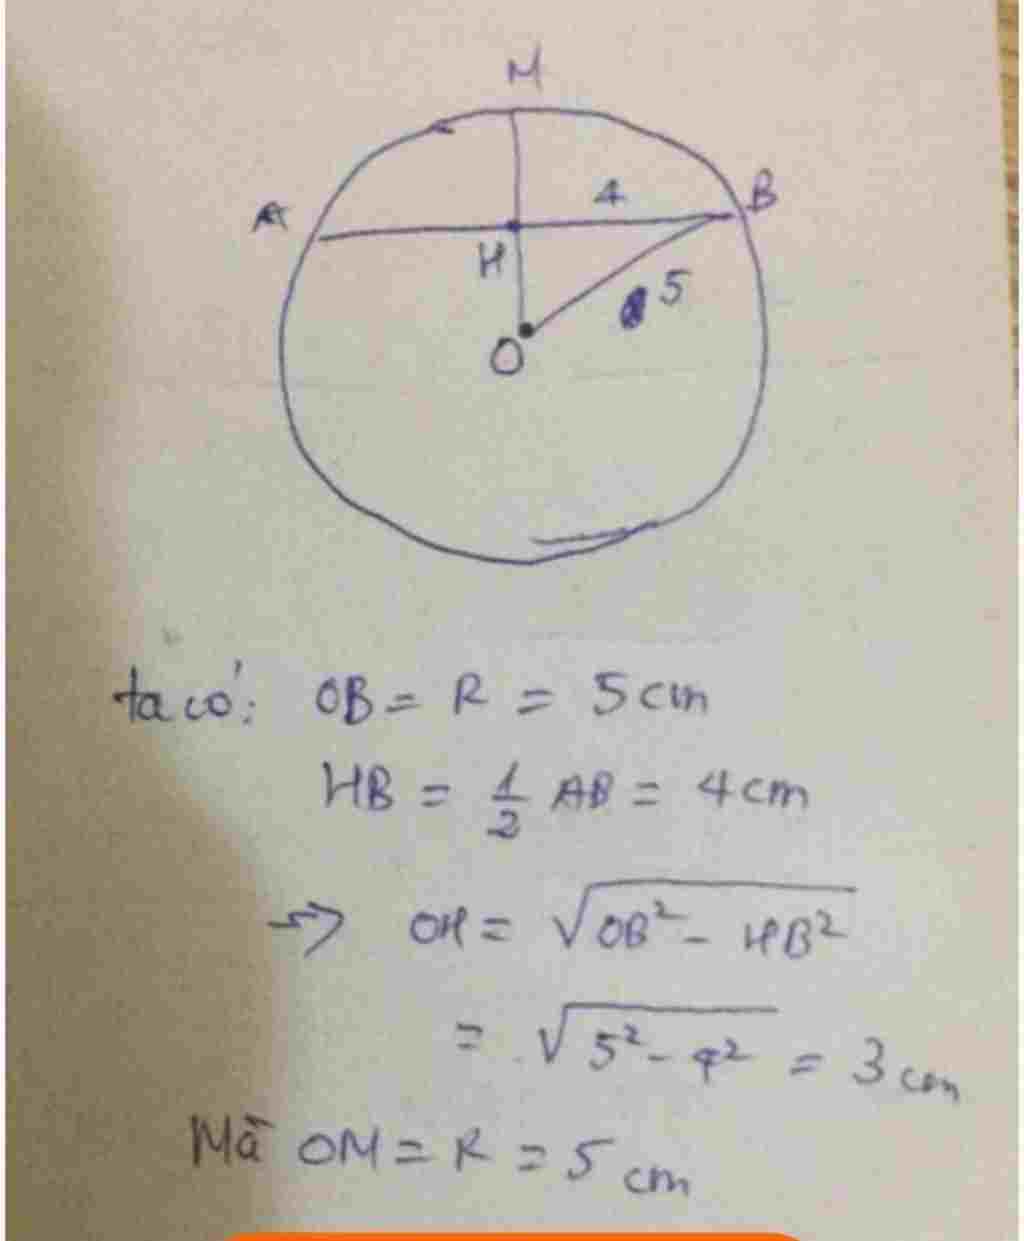 M
A
4
B
H
5
O
ta có: OB = R = 5cm
HB = 1/2 AB = 4cm
=> OH = √(OB² - HB²)
= √(5² - 4²) = 3cm
Mà OM = R = 5cm